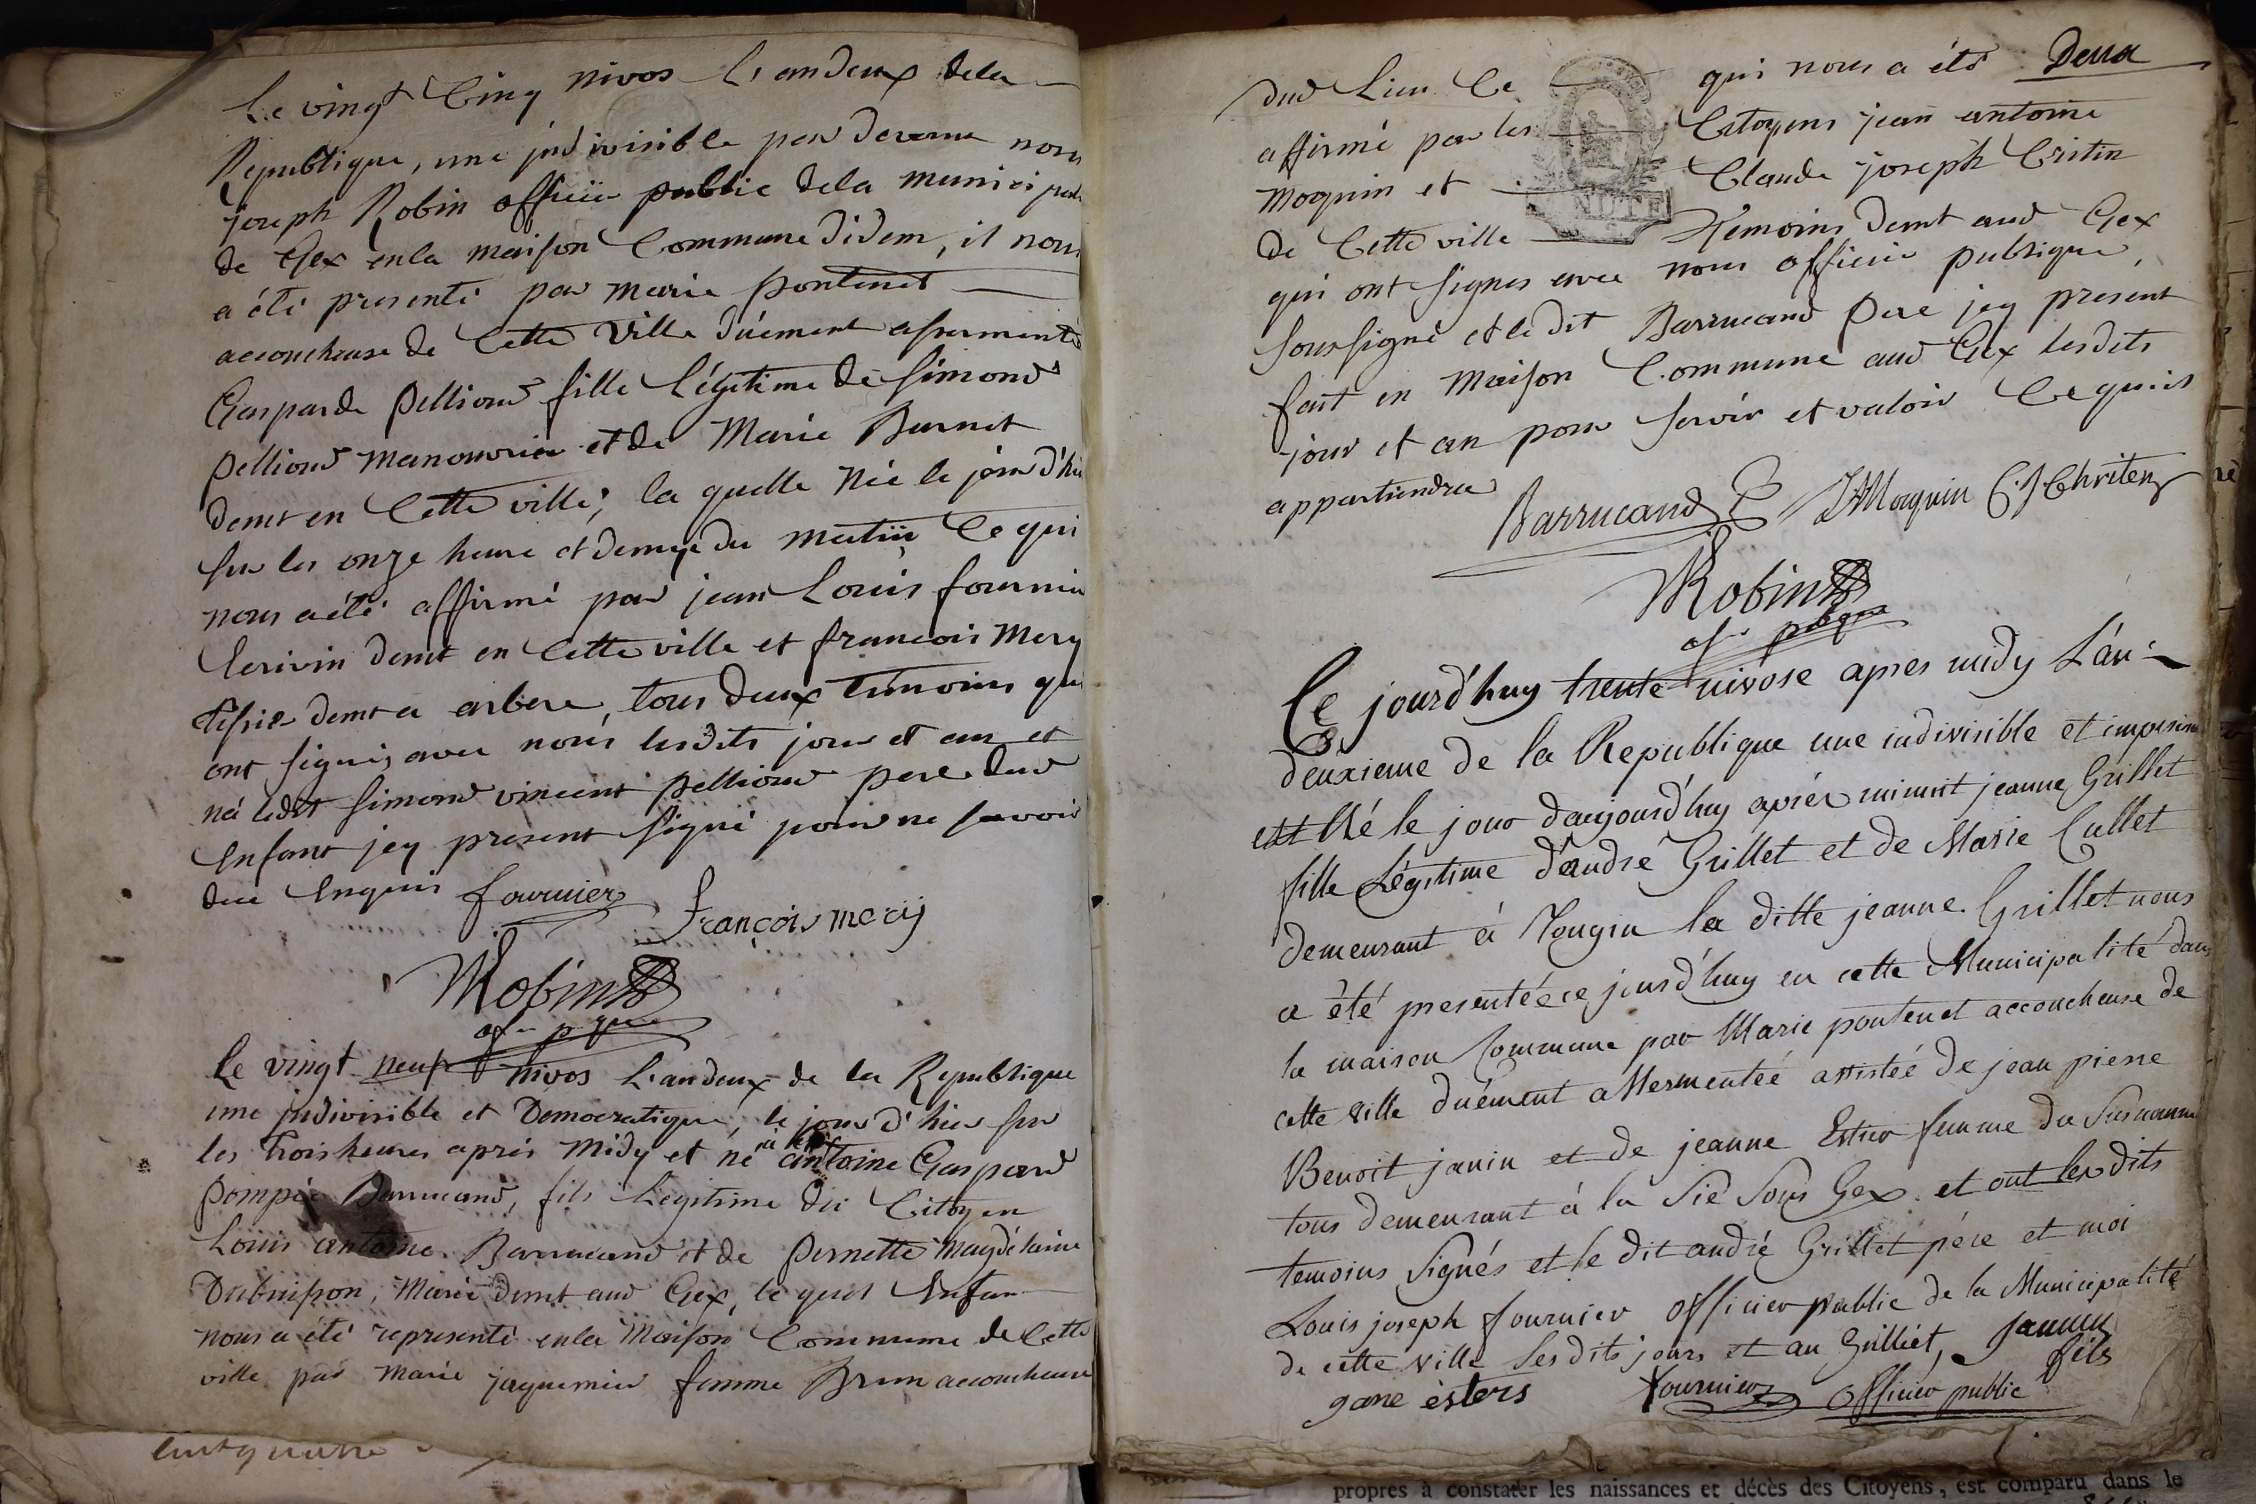 Le vingt Cinq nivos L'an deux dela
Republique, une jndivisible par devant nous
joseph Robin officier public dela municipali
de Gex en la maison Commune didem, il nous
a été presenté par marie pontenet
accoucheuse de Cette Ville duement assermenté
Gasparde pelliond fille légitime de Simond
pelliond manouvrier et de Marie Burnet
demt en Cette ville; la quelle Née le jour d'hui
sur les onze heure et demye du matin Ce qui
nous a été affirmé par jean Louis fournier
Ecrivin demt en Cette ville et francois Mery
demt a arbere, tous deux témoins qui
ont signés avec nous lesdits jour et an et
né ledit Simond vincent pelliond pere dud
Enfant jcy present signé pour ne savoir
due Enquis fournier François mery
Robin
of. p. que
Le vingt neuf nivos L'an deux de la Republique
une jndivisible et Democratique, le jour d'hier sur
les trois heures après Midy et né antoine Gaspard
pompée Barrucand, fils légitime du Citoyen
Louis antoine Barrucand et de pernette magdelaine
Dubuisson, Marié demt aud Gex, le quel Enfan
nous a été representé en la Maison Commune de Cette
ville par marie jaquemier femme Brun accoucheuse
Deux
dud Lieu Ce qui nous a été
affirmé par les Citoyens jean antoine
Moquin et Claude joseph Critin
NUTE
de Cette ville témoins demt aud Gex
qui ont signes avec nous officier publique,
soussigné et le dit Barrucand pere jcy present
fait en Maison Commune aud Gex lesdits
jour et an pour servir et valoir Ce qu'il
appartiendra
Barrucand JAMoquin C.J Chriten
Robin
of. pbque
Ce jourd'huy trente nivose apres midy L'an
deuxieme de la Republique une indivisible et imperiss
est Né le jour daujourd'huy aprés minuit jeanne Grillet
fille Légitime d'andré Grillet et de Marie Cullet
demeurant á Tougin la ditte jeanne Grillet nous
a été presentée ce jourd'huy en cette Municipalité dans
la maison Commune par Marie pontenet accoucheuse de
cette ville duément assermentéé assistéé de jean pierre
Benoit janin et de jeanne Estier femme du Susnommé
tous demeurant á la Sie Sous Gex et ont les dits
temoins Signés et le dit andré Grillet pére et moi
Louis joseph fournier officier public de la Municipalité
de cette ville les dits jours et an Grilliet, Jannin
fils
gane esters fournier officier public
propres à constater les naissances et décès des Citoyens, est comparu dans le